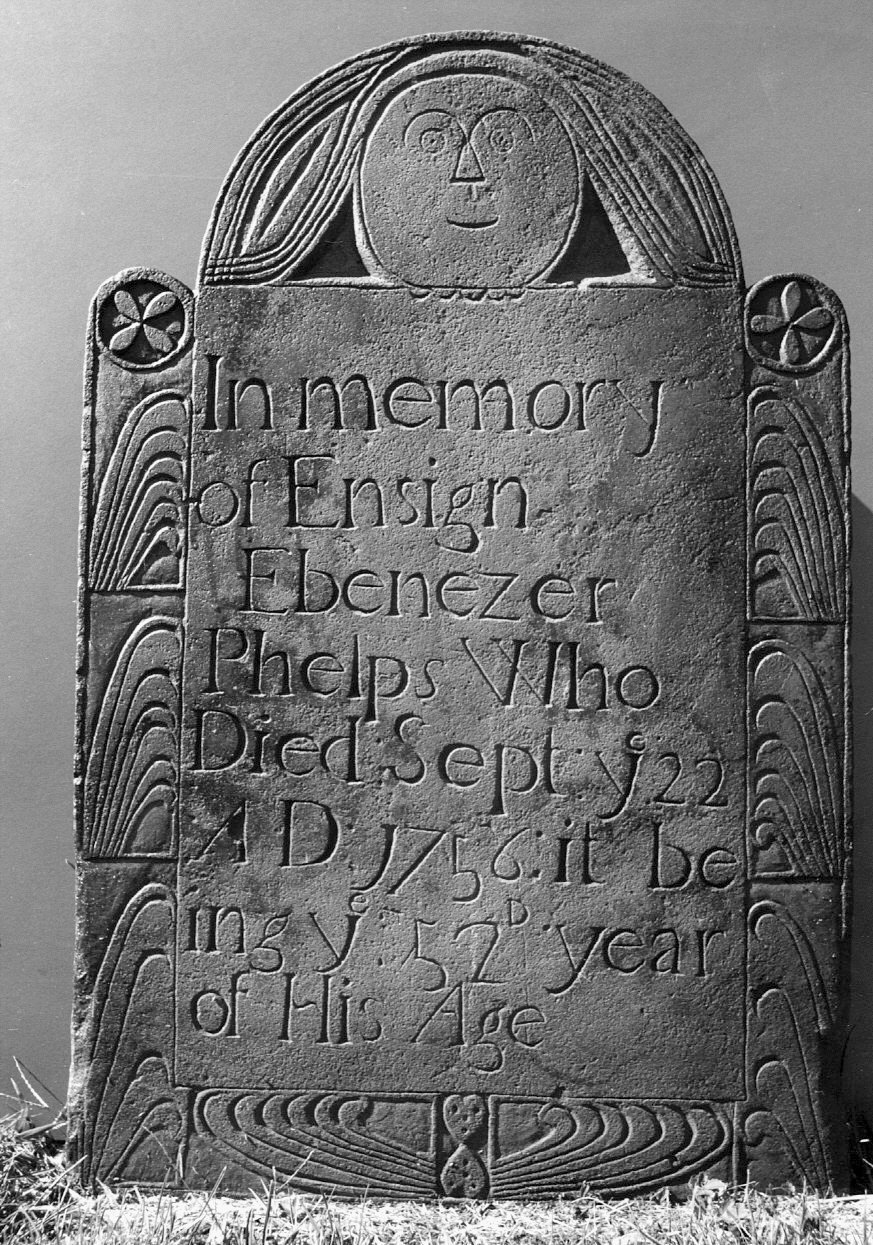 In Memory
of Ensign
Ebenezer
Phelps Who
Died Sept yͤ 22
A D 1756 it be
ing yͤ 52ᴰ year
of His Age